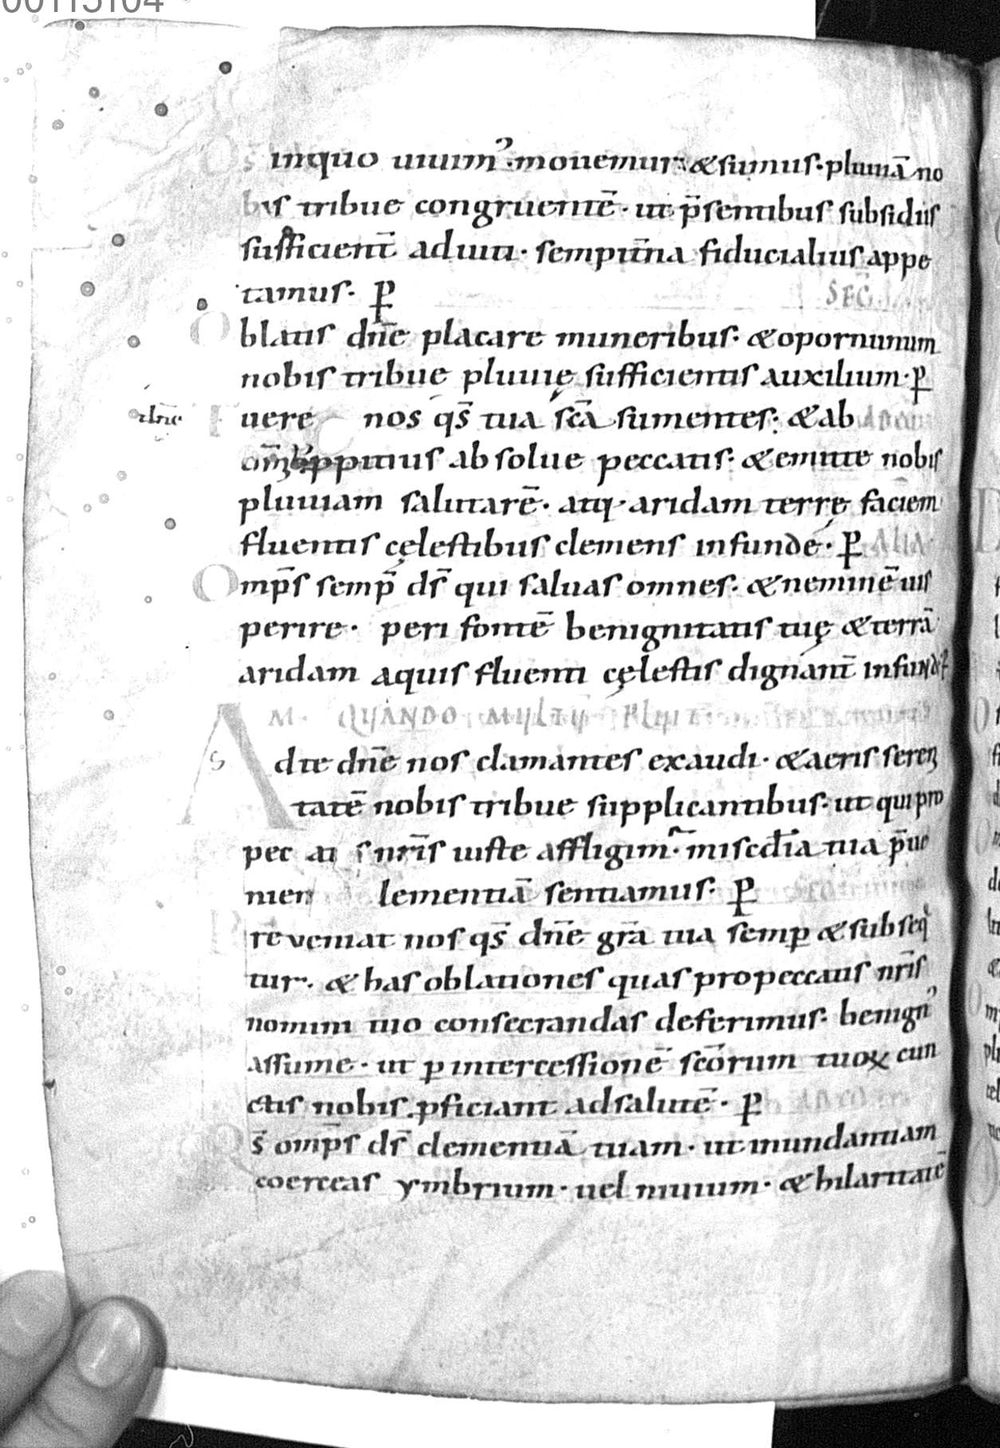 00115104
inquo uiuim᷒. mouemur. & sumus. pluuiā no
bis tribue congruentē. ut p̄sentibus subsidiis
sufficient̄ adiuti. sempit̄na fiducialius appe
tamus. P
SEC̄.
blatis dn̄e placare muneribus. & oportunum
nobis tribue pluuię sufficientis auxilium. P
dn̄e
Tuere nos qs̄ tua sc̄a sumentes. & ab
ppitius absolue peccatis. & emitte nobis
pluuiam salutarē. atq. aridam terrę faciem
fluentis cęlestibus clemens infunde. P ALIA.
Omp̄s semp̄ ds̄ qui saluas omnes. & neminē uis
perire. peri fontē benignitatis tuę & terrā
aridam aquis fluenti cęlestis dignant̄ infunde
M. QUANDO MULTU PLUIT
Ad te dn̄e nos clamantes exaudi. & aeris seren
tatē nobis tribue supplicantibus. ut qui pro
pec nr̄is iuste affligim᷒. miscd̄ia tua p̄ue
nien lementiā sentiamus. P
Preueniat nos qs̄ dn̄e gr̄a tua semp & subseq
tur. & has oblationes quas pro peccatis nr̄is
nomini tuo consecrandas deferimus. benign᷒
assume. ut p intercessionē sc̄orum tuoꝝ cun
ctis nobis pficiant ad salutē. P AD CO
Qs̄ omp̄s ds̄ clementiā tuam. ut inundantiam
coerceas ymbrium. uel niuium. & hilaritatē